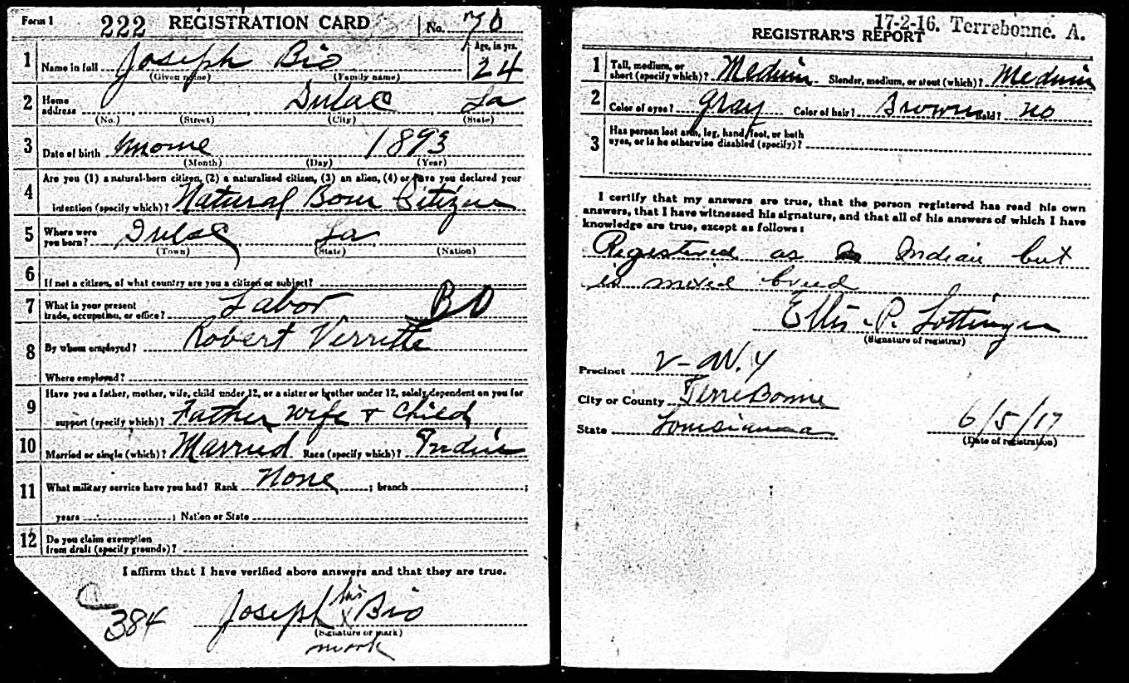 Form 1 222 REGISTRATION CARD No. 70
1 Name in full Joseph Bio Age, in yrs. 24
(Given name) (Family name)
2 Home address Dulac La
(No.) (Street) (City) (State)
3 Date of birth 1893
(Month) (Day) (Year)
4 Are you (1) a natural-born citizen, (2) a naturalized citizen, (3) an alien, (4) or have you declared your
intention (specify which)? Natural Born Citizen
5 Where were you born? Dulac La
(Town) (State) (Nation)
6 If not a citizen, of what country are you a citizen or subject?
7 What is your present trade, occupation, or office? Labor
8 By whom employed? Robert Verrette
Where employed?
9 Have you a father, mother, wife, child under 12, or a sister or brother under 12, solely dependent on you for
support (specify which)? Father wife + Child
10 Married or single (which)? Married Race (specify which)? Indian
11 What military service have you had? Rank None ; branch ;
years ; Nation or State
12 Do you claim exemption from draft (specify grounds)?
I affirm that I have verified above answers and that they are true.
384 Joseph his X Bio
(Signature or mark)
mark
17-2-16. Terrebonne. A.
REGISTRAR'S REPORT
1 Tall, medium, or short (specify which)? Medium Slender, medium, or stout (which)? Medium
2 Color of eyes? Gray Color of hair? Brown Bald? no
3 Has person lost arm, leg, hand, foot, or both
eyes, or is he otherwise disabled (specify)?
I certify that my answers are true, that the person registered has read his own
answers, that I have witnessed his signature, and that all of his answers of which I have
knowledge are true, except as follows:
Registered as Indian but
is mixed breed
Ellis P. Lottinger
(Signature of registrar)
Precinct
City or County TerreBonne
State Louisianaa 6/5/17
(Date of registration)